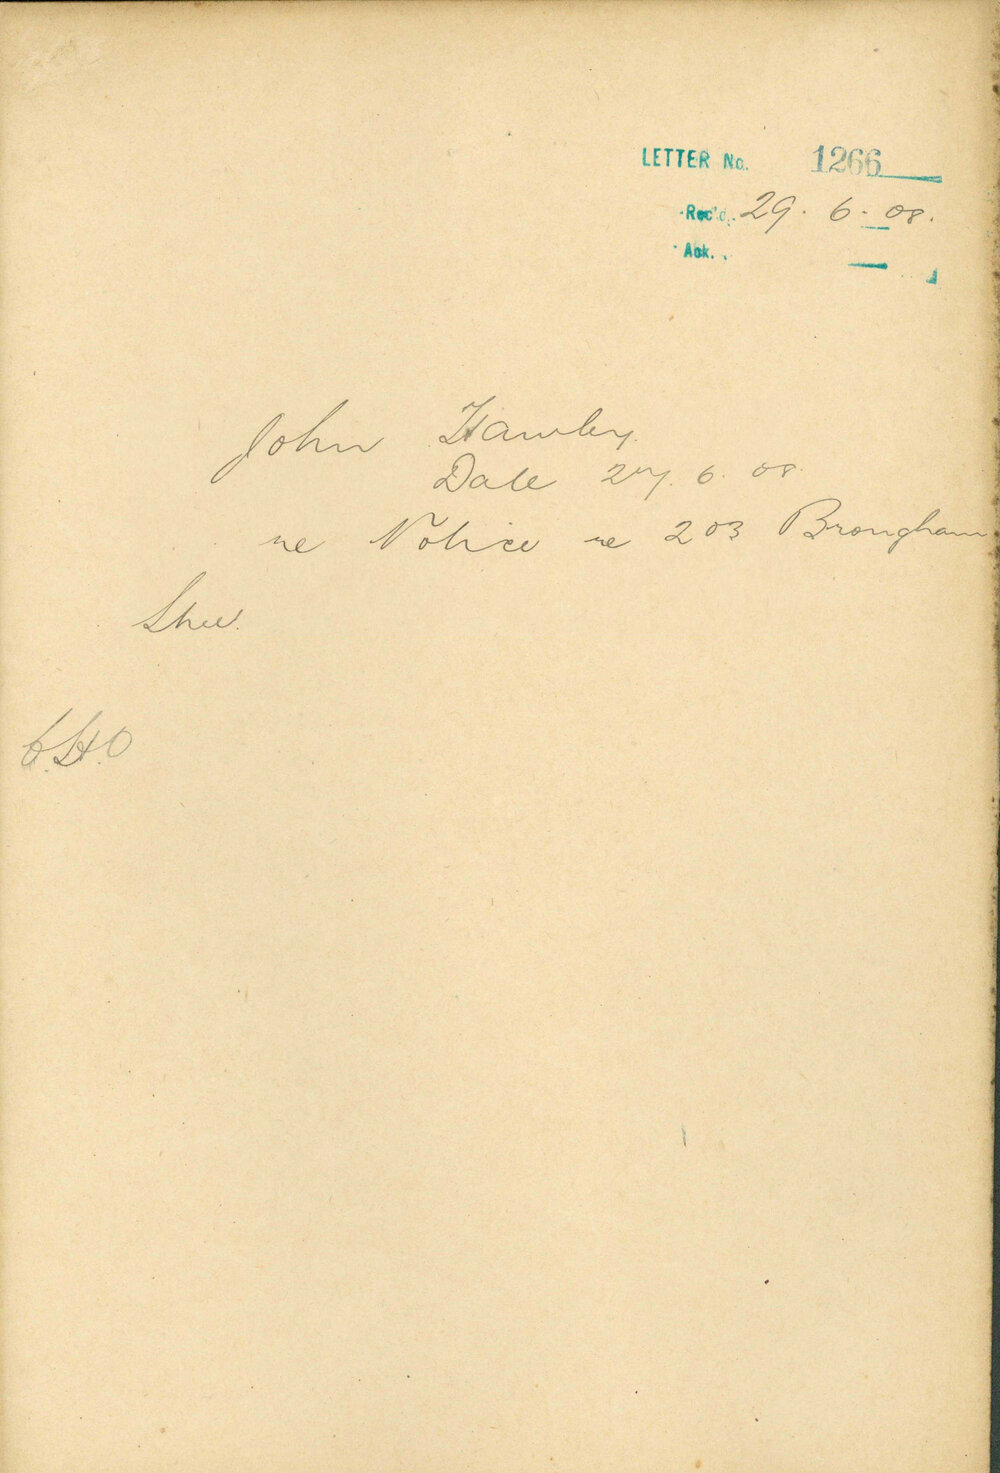 LETTER No. 1266
Rec'd. 29. 6. 08.
Ack.
John Hawley.
Date 27. 6. 08.
re Notice re 203 Brougham